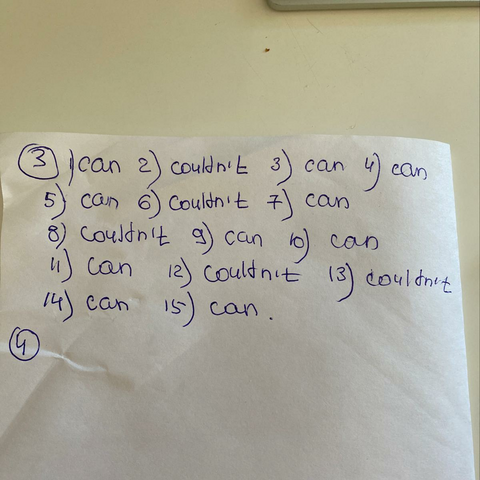 ③ 1) can 2) couldn't 3) can 4) can
5) can 6) couldn't 7) can
8) couldn't 9) can 10) can
11) can 12) couldn't 13) couldn't
14) can 15) can.
④